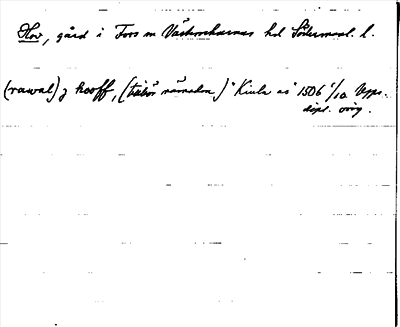 Hov, gård i Fors sn Västerrekarne hd Södermanl. l.
(rawal) j hooff, (tubör nämnden) "Kiula as" 1506 1/10 Upps.
dipl. orig.